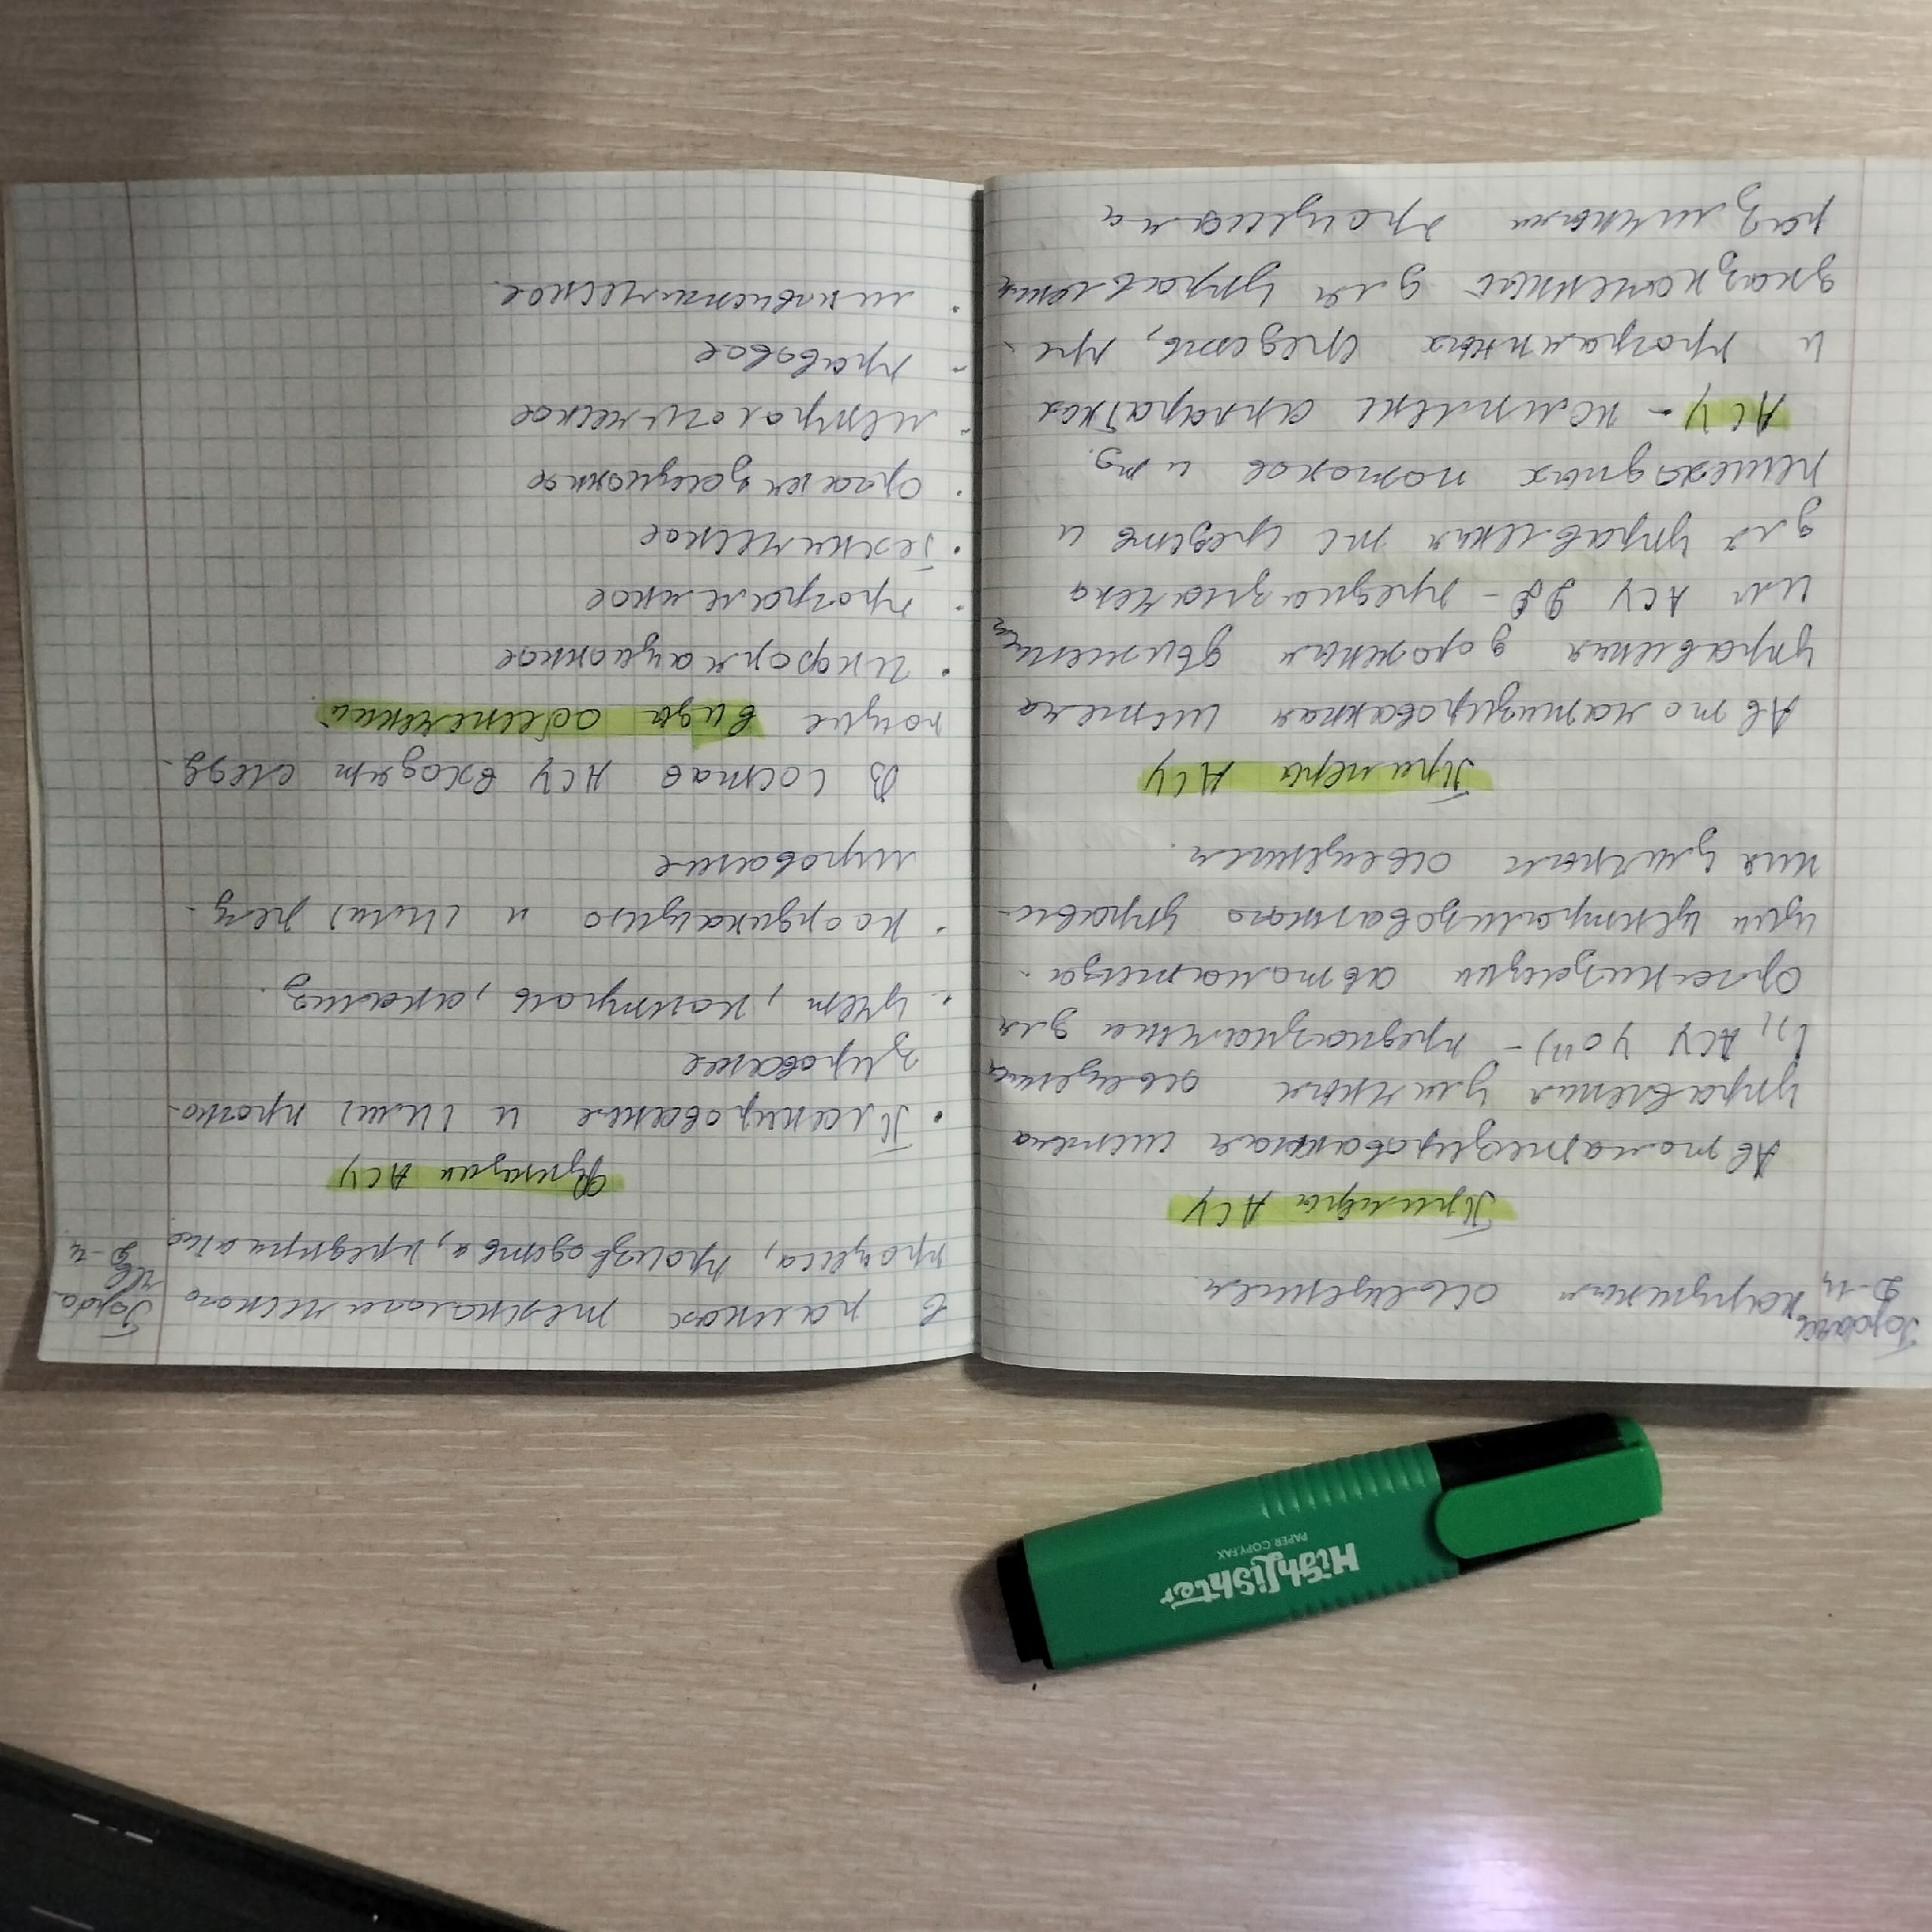 Горба
наружным освещением.
Примеры АСУ
Автоматизированная система
управления уличным освещением
АСУ УОП) - предназначена для
организации автоматизи-
ции централизованного управле-
ния уличным освещением.
Примеры АСУ
Автоматизированная система
управления дорожным движением
или АСУ ДД - предназначена
для управления тс средств и
пешеходных потоков и тд.
АСУ - комплекс аппаратных
и программных средств, пре-
дназначенный для управления
различными процессами
в рамках технологического
процесса, производства, предприятия
Горба
2-4
Функции АСУ
• Планирование и (или) прогно-
зирование
• учет, контроль, анализ.
• координацию и (или) регу-
лирование
В состав АСУ входят след-
ующие виды обеспечений
• Информационное
• программное
• Техническое
• организационное
- метрологическое
- правовое
• лингвистическое.
Highlighter
PAPER COPY.FAX